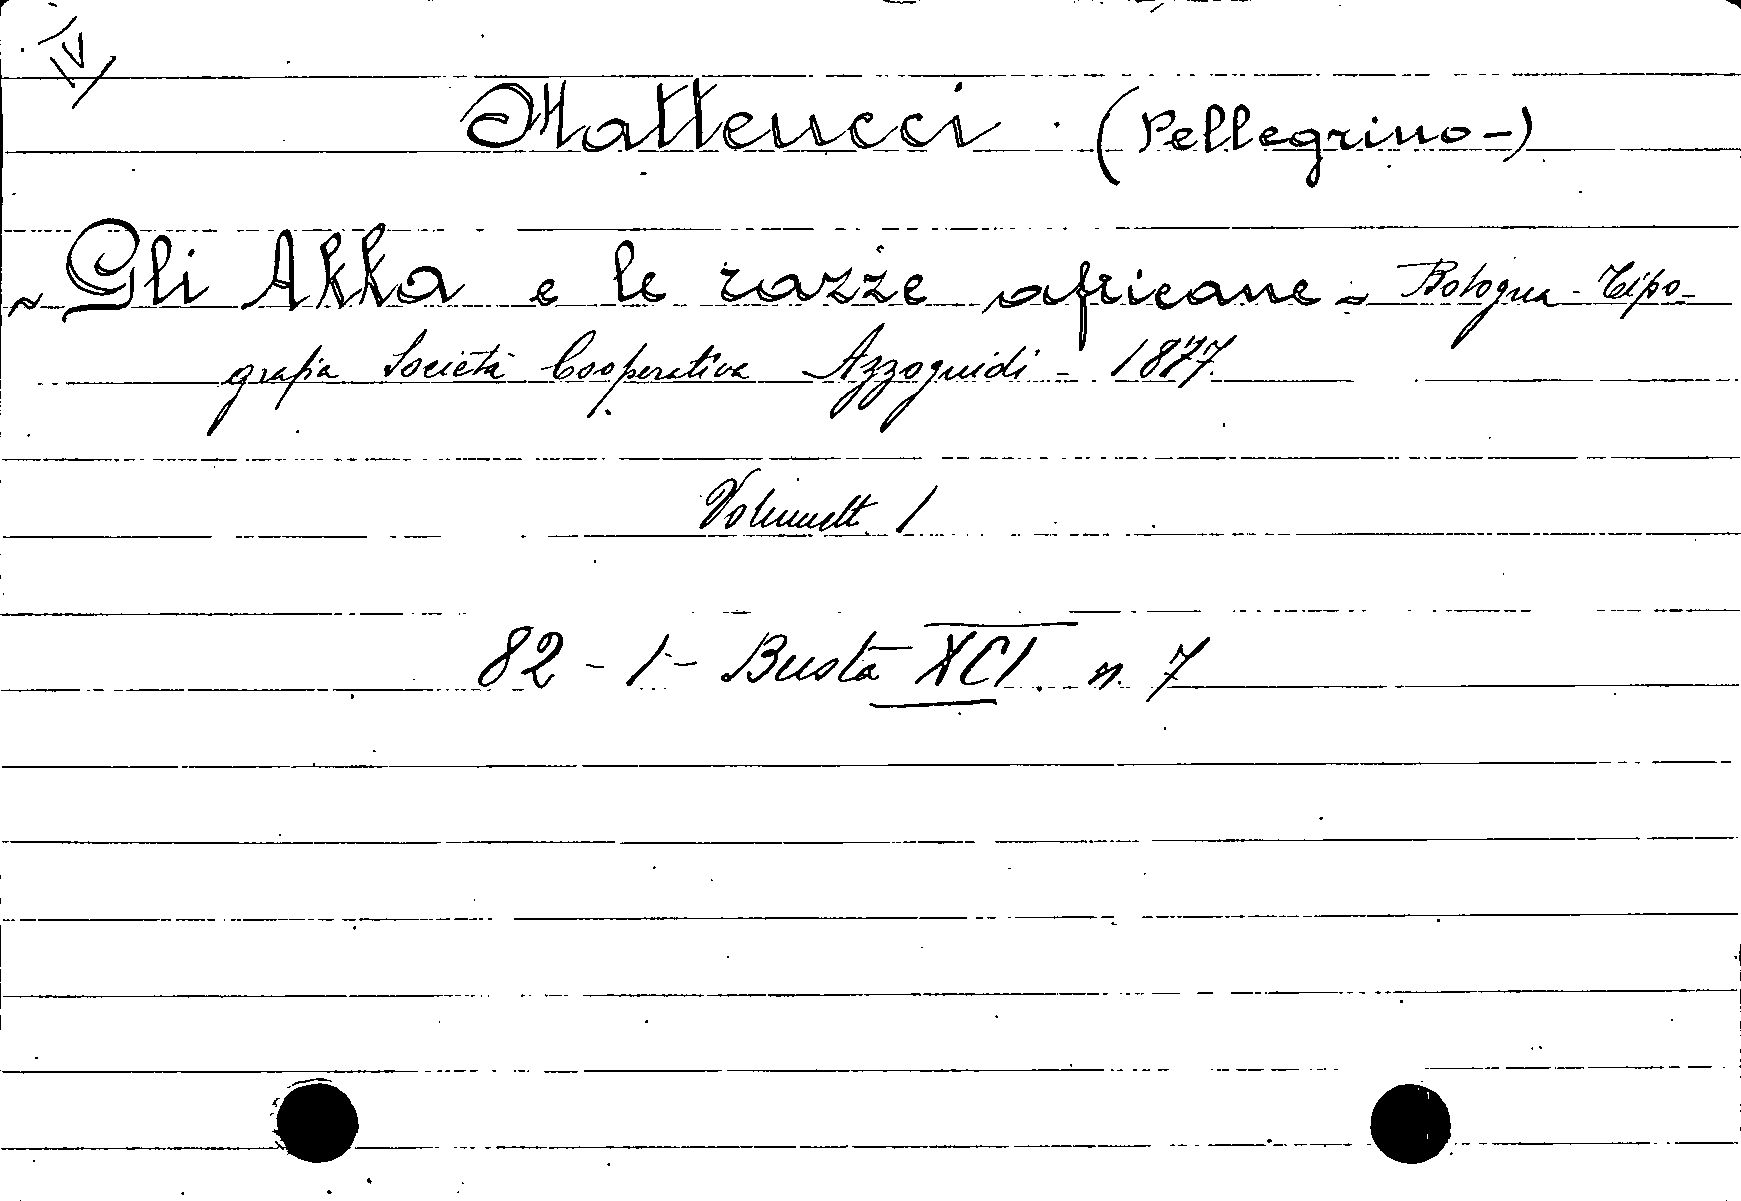 IV
Matteucci (Pellegrino-)
~ Gli Akka e le razze africane ~ Bologna - Tipo-
grafia Società Cooperativa Azzoguidi - 1877.
Volumett. 1
82 - 1 - Busta XCI. n. 7